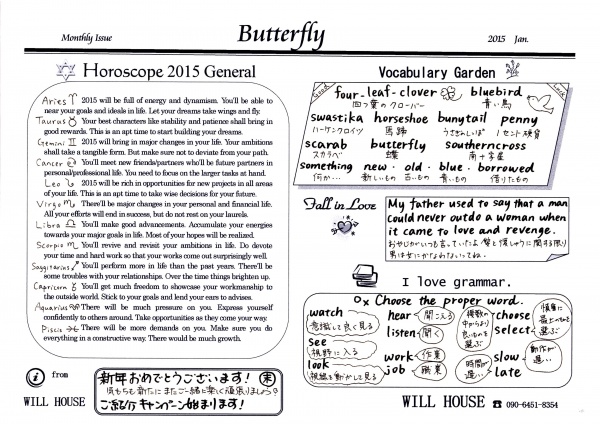 Monthly Issue
Butterfly
2015 Jan.
Horoscope 2015 General
Aries ♈ 2015 will be full of energy and dynamism. You'll be able to
near your goals and ideals in life. Let your dreams take wings and fly.
Taurus ♉ Your best characters like stability and patience shall bring in
good rewards. This is an apt time to start building your dreams.
Gemini ♊ 2015 will bring in major changes in your life. Your ambitions
shall take a tangible form. But make sure not to deviate from your path.
Cancer ♋ You'll meet new friends/partners who'll be future partners in
personal/professional life. You need to focus on the larger tasks at hand.
Leo ♌ 2015 will be rich in opportunities for new projects in all areas
of your life. This is an apt time to take wise decisions for your future.
Virgo ♍ There'll be major changes in your personal and financial life.
All your efforts will end in success, but do not rest on your laurels.
Libra ♎ You'll make good advancements. Accumulate your energies
towards your major goals in life. Most of your hopes will be realized.
Scorpio ♏ You'll revive and revisit your ambitions in life. Do devote
your time and hard work so that your works come out surprisingly well.
Saggitarius ♐ You'll perform more in life than the past years. There'll be
some troubles with your relationships. Over the time things brighten up.
Capricorn ♑ You'll get much freedom to showcase your workmanship to
the outside world. Stick to your goals and lend your ears to advises.
Aquarius ♒ There will be much pressure on you. Express yourself
confidently to others around. Take opportunities as they come your way.
Pisces ♓ There will be more demands on you. Make sure you do
everything in a constructive way. There would be much growth.
from
WILL HOUSE
新年おめでとうございます! 未
気もちも新たにまたご一緒に楽しく頑張りましょう
ご紹介キャンペーン始まります!
Vocabulary Garden
Good
Luck
four-leaf-clover bluebird
四つ葉のクローバー 青い鳥
swastika horseshoe bunytail penny
ハーケンクロイツ 馬蹄 うさぎのしっぽ 1セント硬貨
scarab butterfly southerncross
スカラベ 蝶 南十字星
something new・old・blue・borrowed
何か… 新しいもの 古いもの 青いもの 借りたもの
Fall in Love
My father used to say that a man
could never outdo a woman when
it came to love and revenge.
おやじがいつも言っていたよ、愛と復しゅうに関する限り
男は女にかなわないってね。
I love grammar.
Choose the proper word.
watch
意識して良く見る
see
視野に入る
look
視線を動かして見る
hear 聞こえる
listen 聞く
work 作業
job 職業
choose
複数の中からより良いものを選ぶ
select
慎重に最上のものを選ぶ
slow
動作が遅い
late
時間が遅い
WILL HOUSE ☎ 090-6451-8354